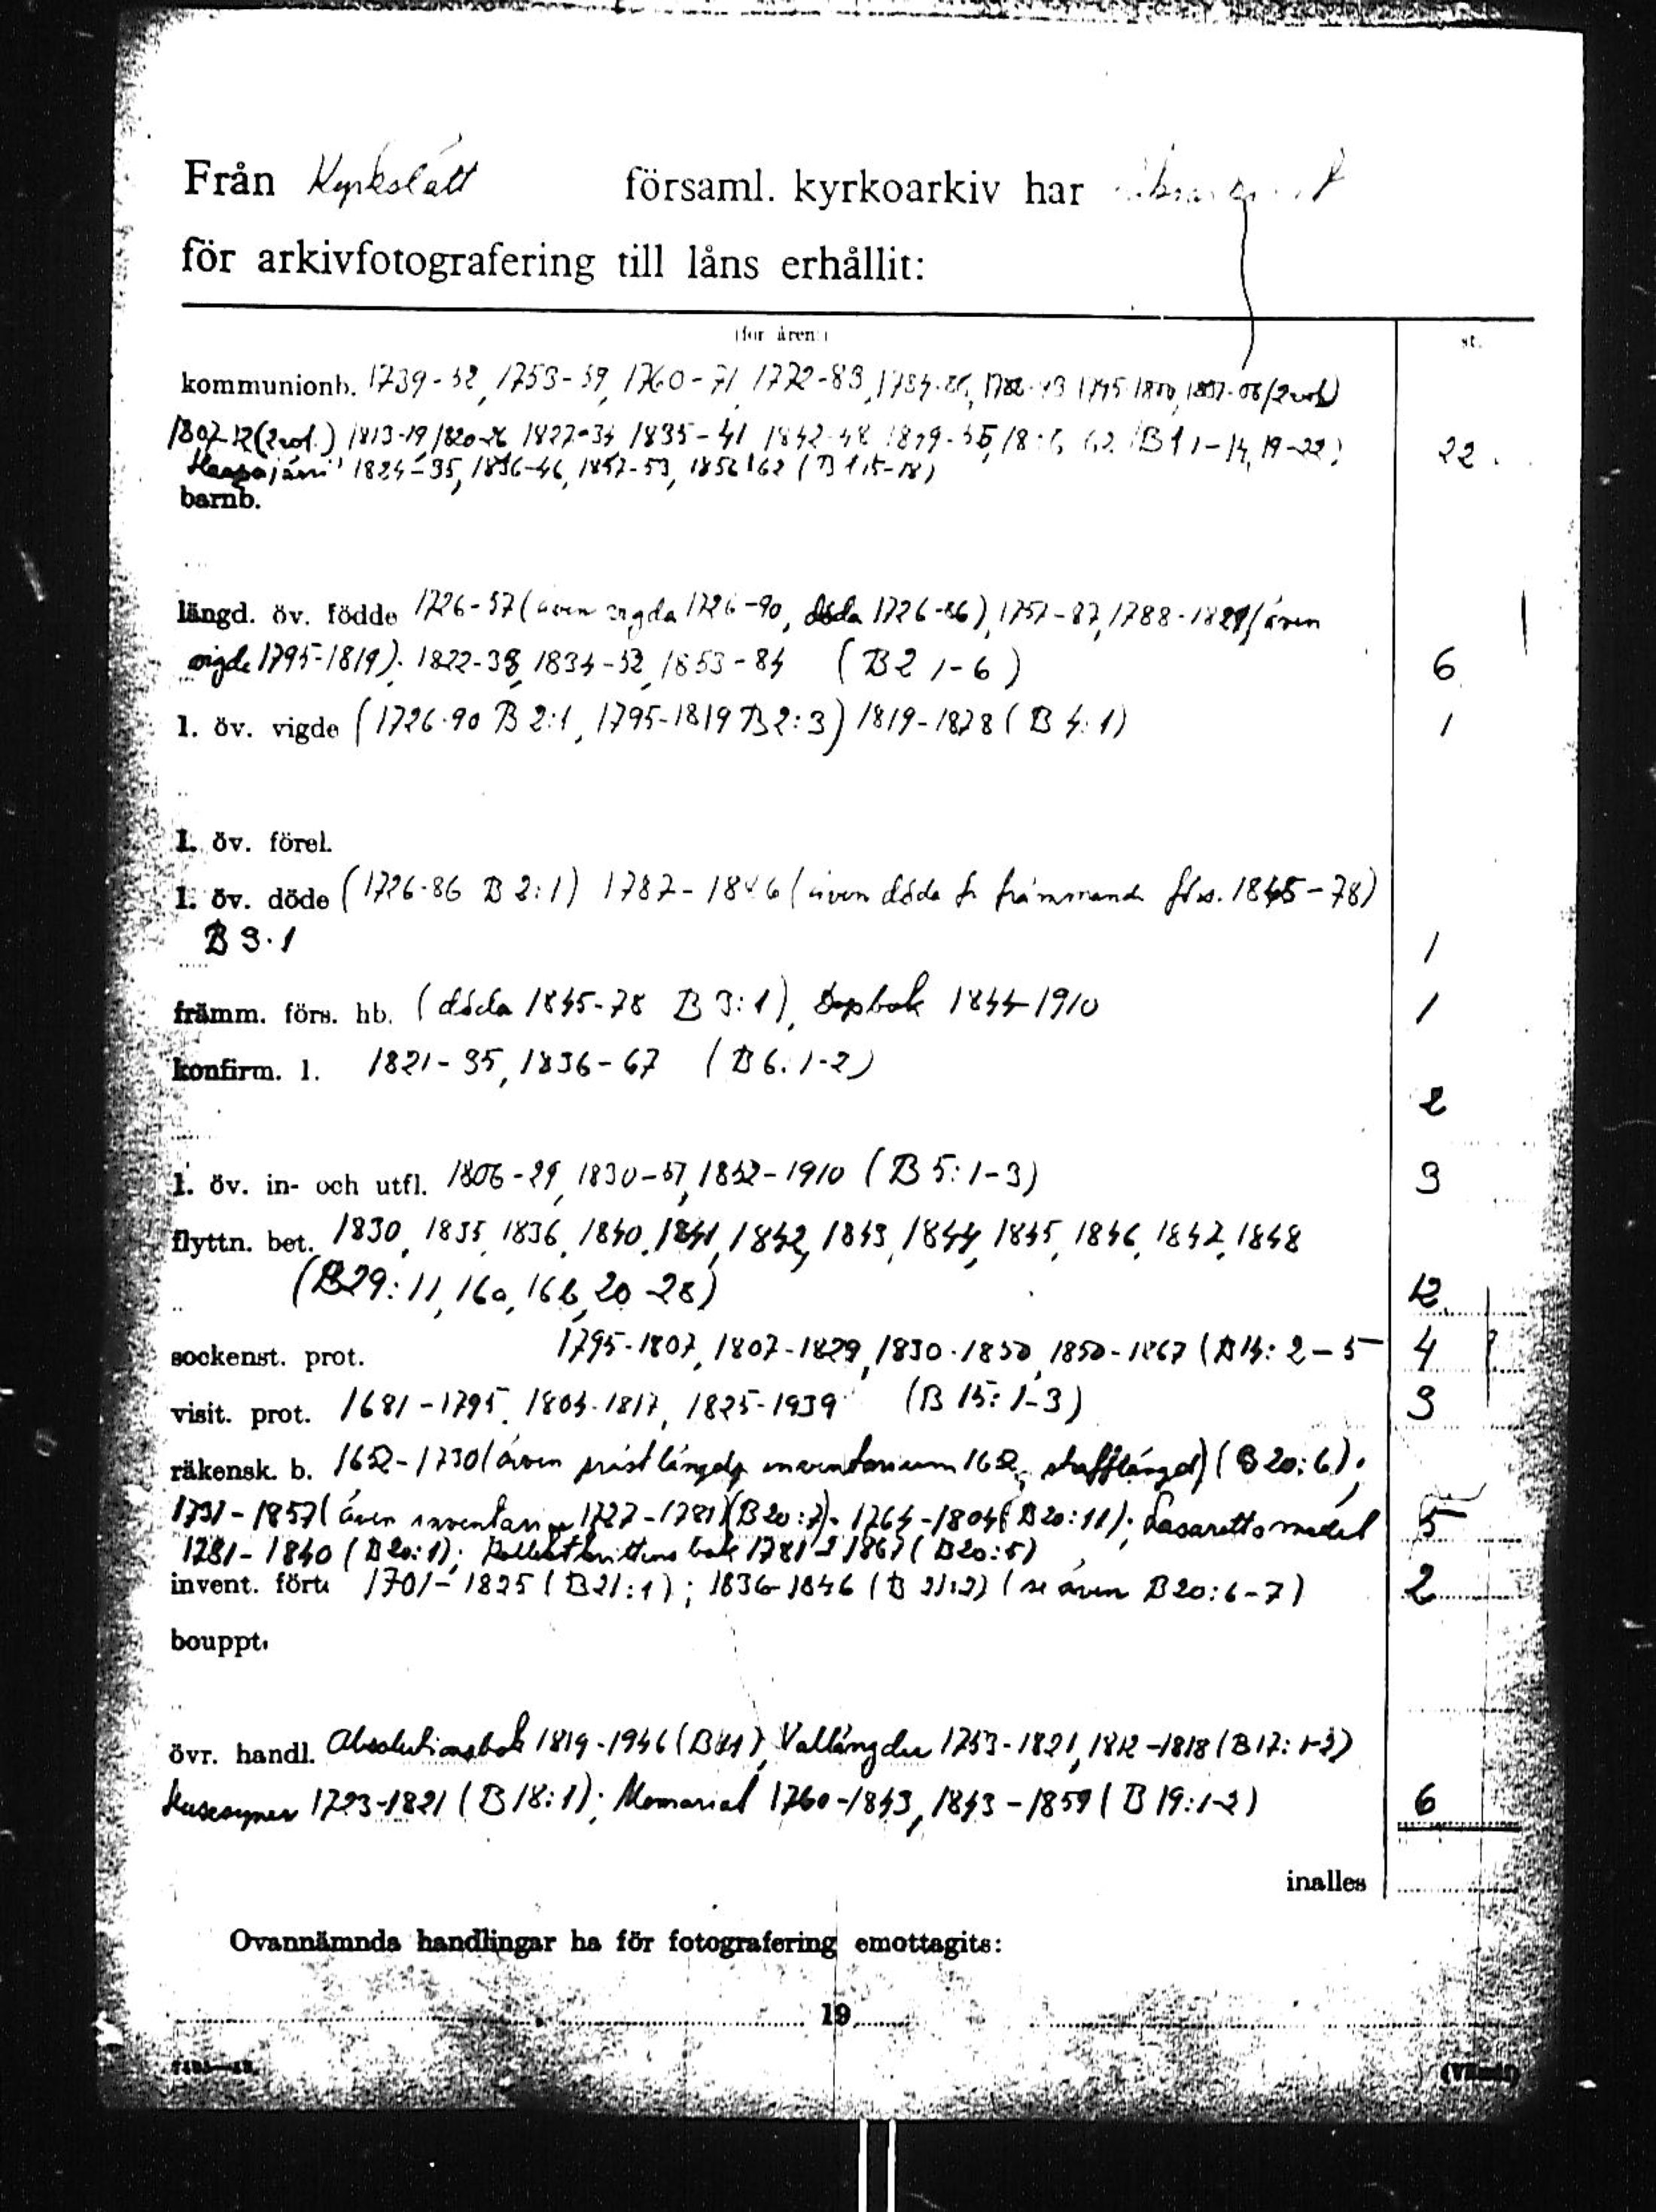 Från Kyrkslätt församl. kyrkoarkiv har
för arkivfotografering till låns erhållit:
(för åren:) st.
kommunionb. 1739-52, 1753-59, 1760-71, 1772-83,
1807-12 (2 vol.) 1813-19, 1820-26 1827-34 1835-41 1842-48 (B 1 1-14, 19-22) 22
1824-35, 1836-46, 1847-53, 1856-62 (B 1 15-18)
barnb.
längd. öv. födde 1726-57 (även vigda 1726-90, döda 1726-86), 1757-87, 1788-1821 (även
vigde 1795-1819). 1822-33, 1834-52, 1853-84 (B 2 1-6) 6
l. öv. vigde (1726-90 B 2:1, 1795-1819 B 2:3) 1819-1878 (B 4:1) 1
l. öv. förel.
l. öv. döde (1726-86 B 2:1) 1787-1846 (även döda fr främmande förs. 1845-78)
B 3:1 1
främm. förs. hb. (döda 1845-78 B 3:1), Dopbok 1844-1910 1
konfirm. l. 1821-35, 1836-67 (B 6:1-2)
2
l. öv. in- och utfl. 1806-29, 1830-51, 1852-1910 (B 5:1-3) 3
flyttn. bet. 1830, 1835, 1836, 1840, 1841, 1842, 1843, 1844, 1845, 1846, 1847, 1848
(B29: 11, 16a, 16b, 20-28) 12
sockenst. prot. 1795-1807, 1807-1829, 1830-1850, 1850-1867 (B 14: 2-5 4
visit. prot. 1681-1795, 1804-1817, 1825-1939 (B 15: 1-3) 3
räkensk. b. 1652-1730 (även inventarium (B 20:6);
1731-1857 (även inventarium 1727-1781) (B 20:7); 1764-1804 (B 20:11); Lasarettsmedel 5
1781-1840 (B 20:1); 1781-1867 (B 20:5)
invent. fört. 1701-1825 (B 21:1); 1836-1846 (B 21:2) (se även B 20:6-7) 2
bouppt.
övr. handl. Absolutionsbok 1819-1946 Vallängder 1753-1821, 1812-1818 (B 17: 1-2)
Husesyner 1723-1821 (B 18:1); Memorial 1760-1843, 1843-1859 (B 19:1-2) 6
inalles
Ovannämnda handlingar ha för fotografering emottagits:
19